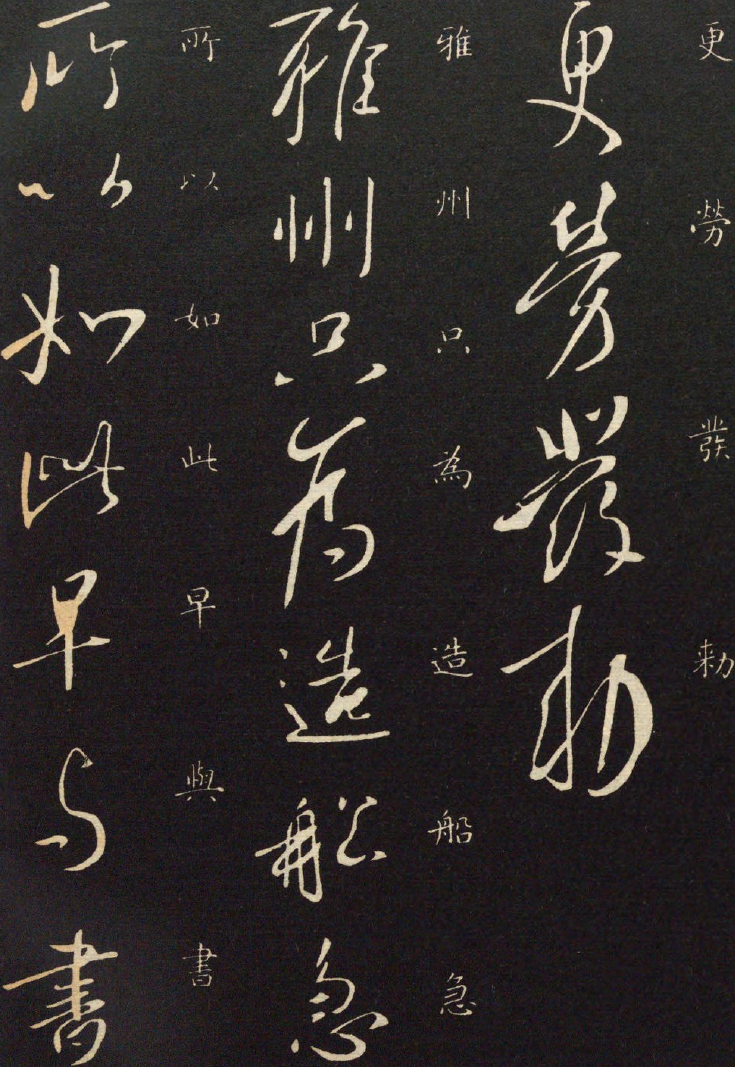 更勞發勑
更勞發勑
雅州只為造船急
雅州只為造船急
所以如此早與書
所以如此早與書